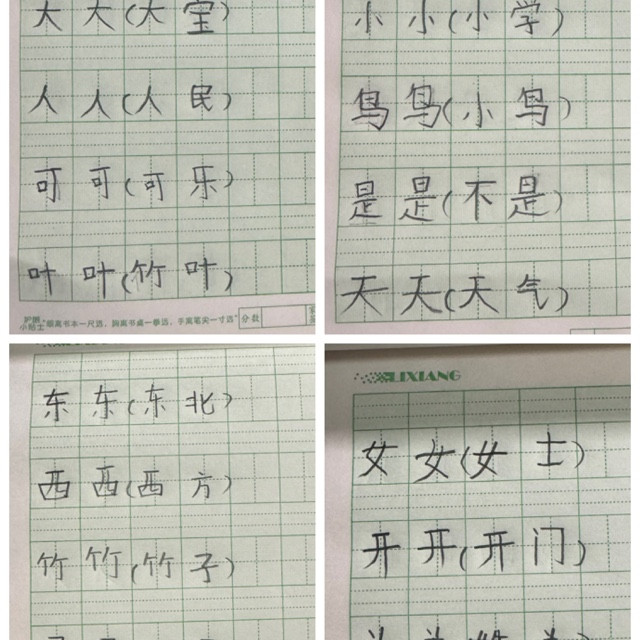 大 大(大 宝)
人 人(人 民)
可 可(可 乐)
叶 叶(竹 叶)
小贴士 "眼离书本一尺远,胸离书桌一拳远,手离笔尖一寸远" 分数
小 小(小 学)
鸟 鸟(小 鸟)
是 是(不 是)
天 天(天 气)
东 东(东 北)
西 西(西 方)
竹 竹(竹 子)
LIXIANG
女 女(女 士)
开 开(开 门)